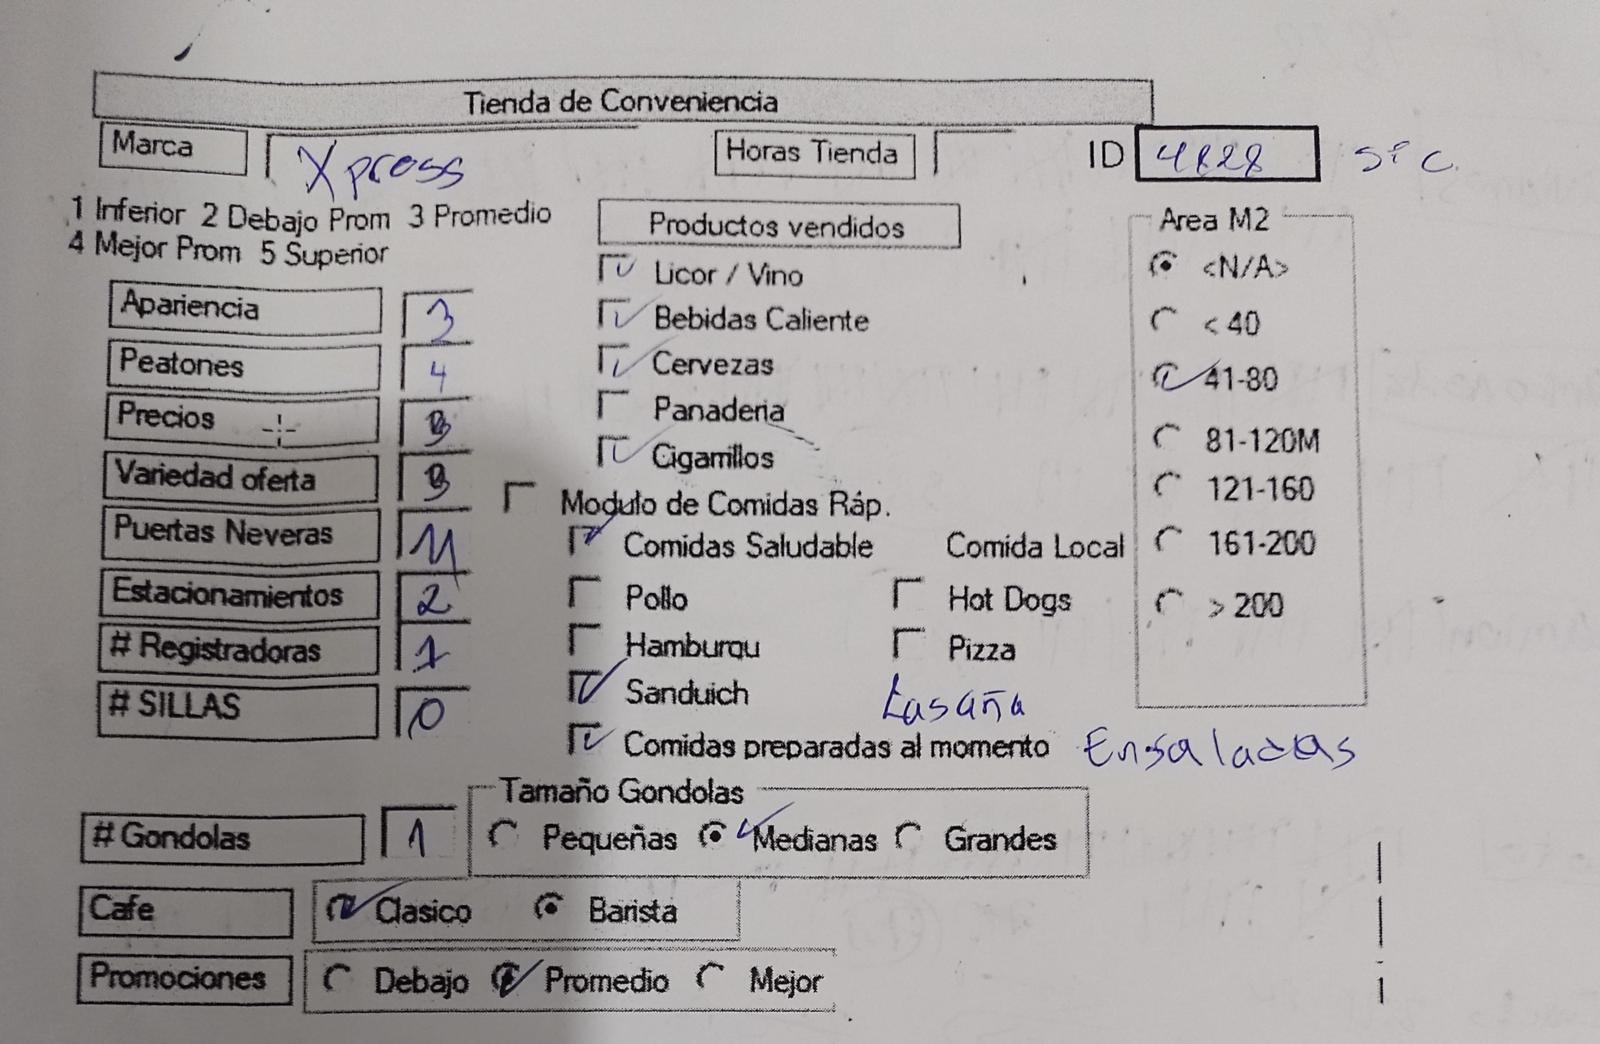 Tienda de Conveniencia
Marca Xpress Horas Tienda ID 4828
1 Inferior 2 Debajo Prom 3 Promedio
4 Mejor Prom 5 Superior
Apariencia 3
Peatones 4
Precios 3
Variedad oferta 3
Puertas Neveras
Estacionamientos 2
# Registradoras 1
# SILLAS 0
Productos vendidos
Licor / Vino
Bebidas Caliente
Cervezas
Panaderia
Cigarrillos
Modulo de Comidas Ráp.
Comidas Saludable Comida Local
Pollo Hot Dogs
Hamburqu Pizza
Sanduich Lasaña
Comidas preparadas al momento Ensaladas
Area M2
<N/A>
< 40
41-80
81-120M
121-160
161-200
> 200
Tamaño Gondolas
# Gondolas 1 Pequeñas Medianas Grandes
Cafe Clasico Barista
Promociones Debajo Promedio Mejor